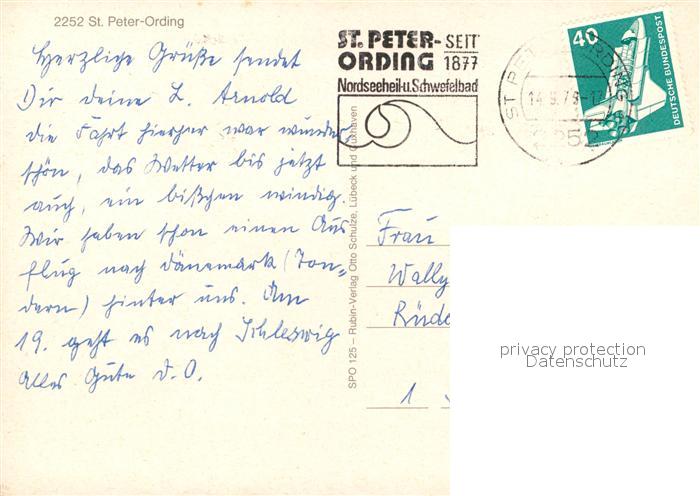 2252 St. Peter-Ording
Herzliche Grüße sendet
Dir deine L. Arnold
die Fahrt hierher war wunder
schön, das Wetter bis jetzt
auch, ein bißchen windig.
Wir haben schon einen Aus
flug nach Dänemark (Ton=
dern) hinter uns. Am
19. geht es nach Schleswig
Alles Gute D. O.
ST. PETER-
ORDING
SEIT
1877
Nordseeheil-u.Schwefelbad
ST PET
ORDING
14.9.79-17
2252
40
DEUTSCHE BUNDESPOST
SPO 125 – Rubin-Verlag Otto Schulze, Lübeck und Cuxhaven
Frau
Wally
Rüde
1
privacy protection
Datenschutz